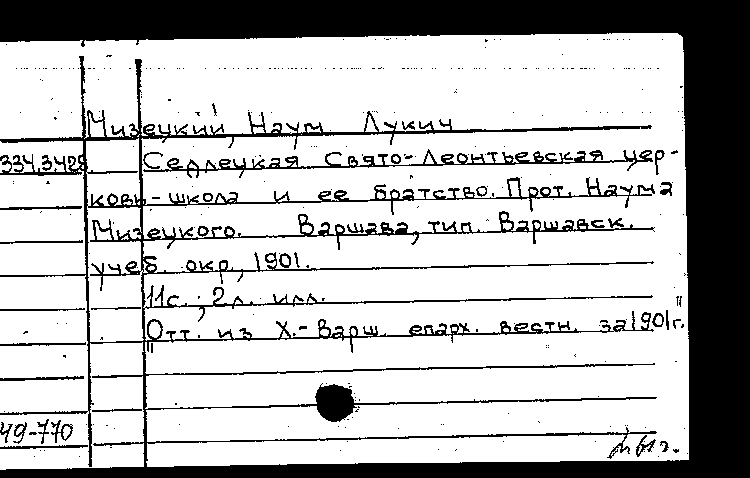 Мизецкий, Наум Лукич
334.3428 Седлецкая Свято-Леонтьевская цер-
ковь-школа и ее братство. Прот. Наума
Мизецкого. Варшава, тип. Варшавск.
учеб. окр., 1901.
11с.; 2л. илл.
"Отт. из Х.-Варш. епарх. вестн. за 1901г."
49-770
61г.